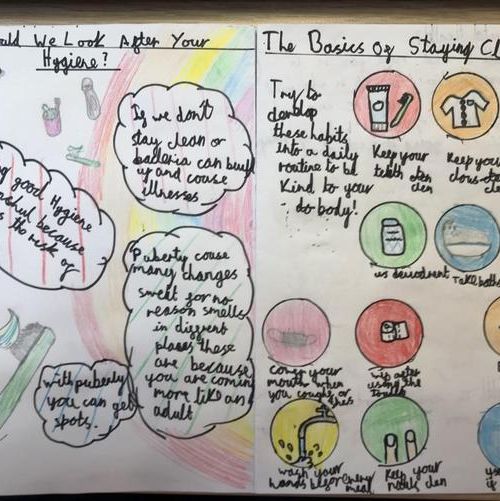 ould We Look After Your
Hygiene?
If we don't
stay clean or
bacteria can buil
up and couse
illnesses
g good Hygiene
because
the risk of
Puberty couse
many changes
sweat for no
reason smells
in diffrent
places these
are because
you are coming
more like an
adult
with puberty
you can get
spots.
The Basics Of Staying Cl
Try to
develop
these habits
into a daily
routine to be
Kind to your
body!
Keep your
teeth clen
Keep you
us deoudrent
Take baths
cover your
mouth when
you cough or
wip after
using the
wash your
hands before every
meal
Keep your
nails clen